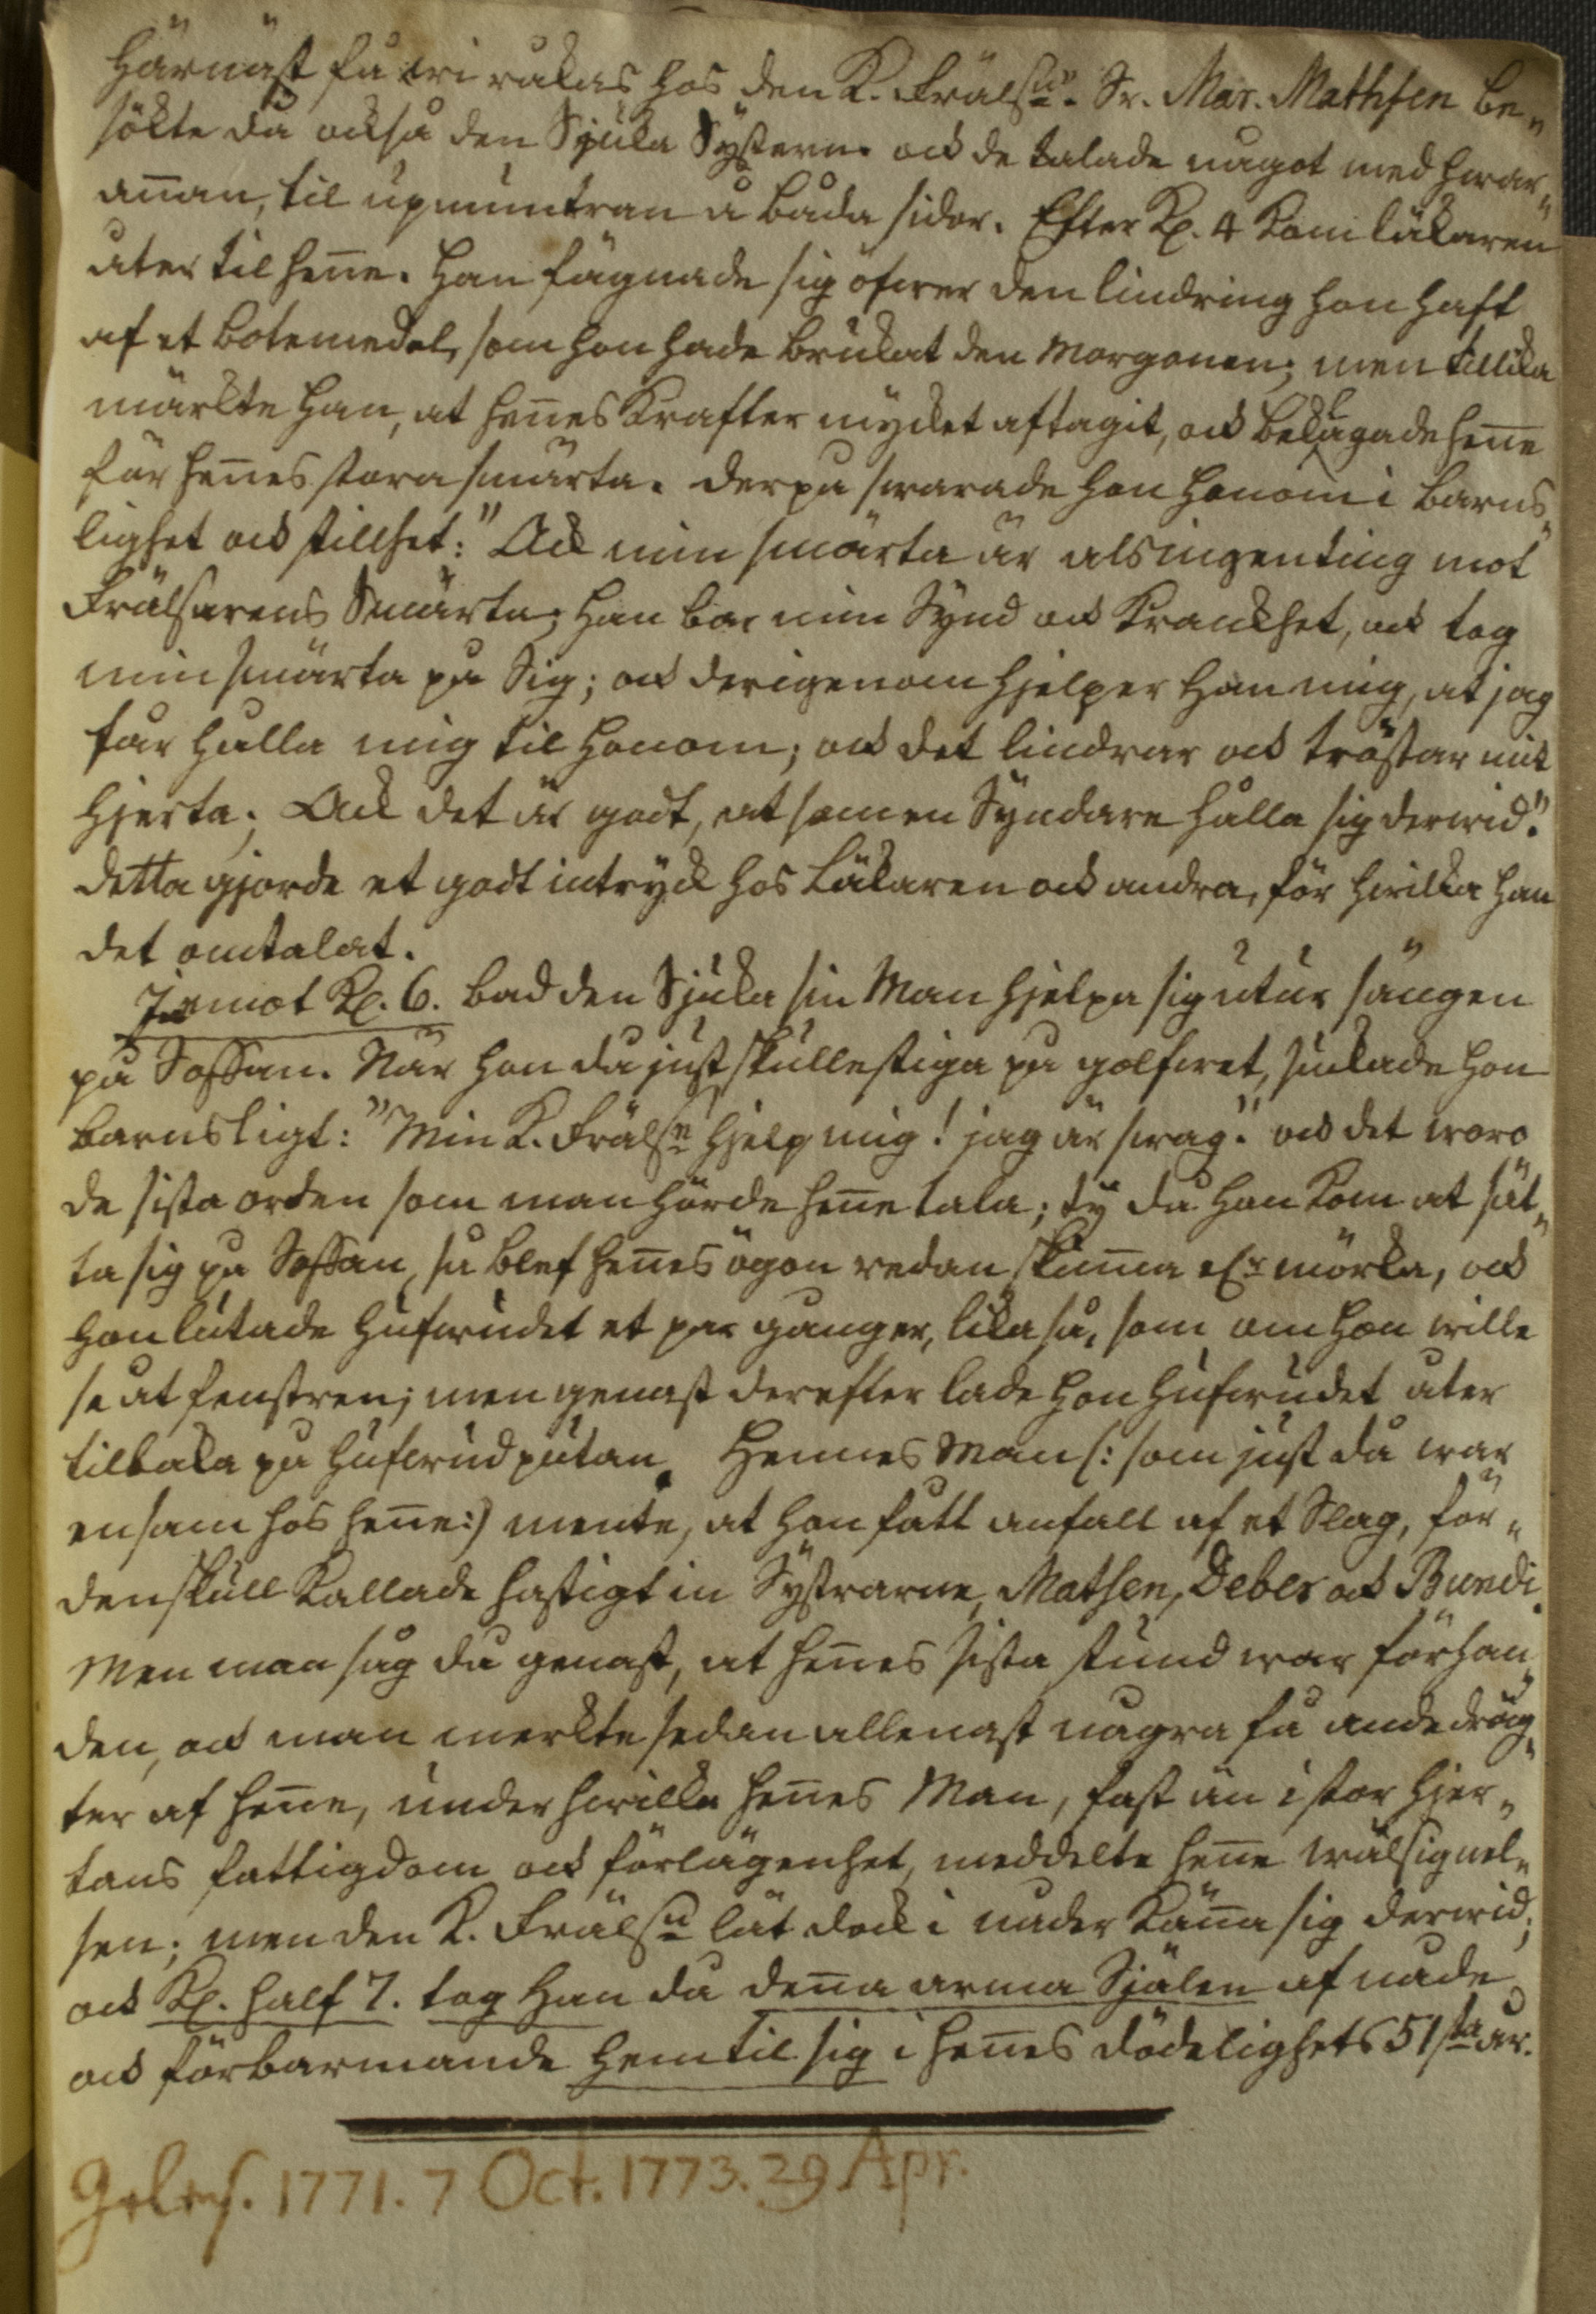 Härnäst få wi råkas hos den K. Frälsn. Sr. Mar. Mathsen be„
sökte då också den Sjuka Systern. ock de talade något med hwar„
an̄an, til upmuntran å båda sidor. Efter Kl. 4 kom läkaren
åter til hen̄e. Han fägnade sig öfwer den lindring hon haft
af et botemedel, som hon hade brukat den morgonen; men tillika
märkte han, at hen̄es krafter mycket aftagit, ock beklagade hen̄e
för hen̄es stora smärta. Derpå swarade hon honom i barns„
lighet ock stillhet: "Ack min smärta är alsingenting mot
Frälsarens Smärta; Han bar min Synd ock Krankhet, ock tog
min smärta på Sig; ock derigenom hjelper Han mig, at jag
får hålla mig til Honom; ock det lindrar ock tröstar mit
hjerta; Ack det är godt, at som en Syndare hålla sig derwid."
detta gjorde et godt intryck hos Läkaren ock andra, för hwilka han
det omtalat.
Inemot Kl. 6. bad den Sjuka sin Man hjelpa sig utur sängen
på Soffan. När hon då just skulle stiga på golfwet, suckade hon
barnsligt: "Min K. Frälsn hjelp mig! jag är swag." ock det woro
de sista orden som man hörde hen̄e tala; ty då hon kom at sät„
ta sig på Soffan, så blef hen̄es ögon redan skum̄a elr mörka, ock
hon lutade hufwudet et par gånger, lika så, som om hon wille
se åt fenstren; men genast derefter lade hon hufwudet åter
tilbaka på hufwudputan. Hennes Man (: som just då war
ensam hos hen̄e:) mente, at hon fått anfall af et Slag, för„
denskull kallade hastigt in Systrarne, Mathsen, Deber ock Bundi.
Men man såg då genast, at hen̄es sista stund war förhan„
den, ock man merkte sedan allenast några få andedräg„
ter af hen̄e, under hwilka hen̄es Man, fast än i stor hjer„
tans fattigdom ock förlägenhet, meddelte hen̄e wälsignel„
sen; men den K. Frälsn lät dock i nåder kän̄a sig derwid;
ock Kl. half 7. tog Han då den̄a arma Själen af nåde
ock förbarmande hem til sig i hen̄es dödelighets 51sta år.
Geles. 1771. 7 Oct. 1773. 29 Apr.